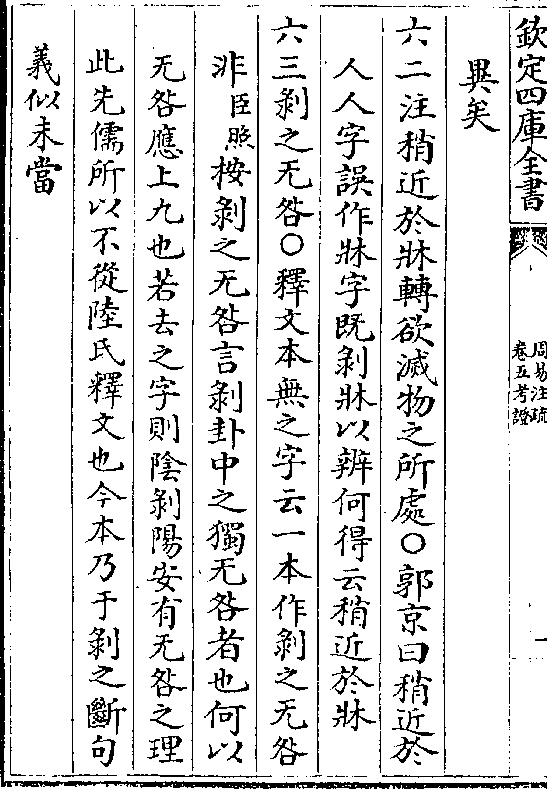 欽定四庫全書
周易注疏
卷五考證
一
異矣
六二注稍近於牀轉欲滅物之所處○郭京曰稍近於
人人字誤作牀字既剝牀以辨何得云稍近於牀
六三剝之无咎○釋文本無之字云一本作剝之无咎
非臣照按剝之无咎言剝卦中之獨无咎者也何以
无咎應上九也若去之字則陰剝陽安有无咎之理
此先儒所以不從陸氏釋文也今本乃于剝之斷句
義似未當